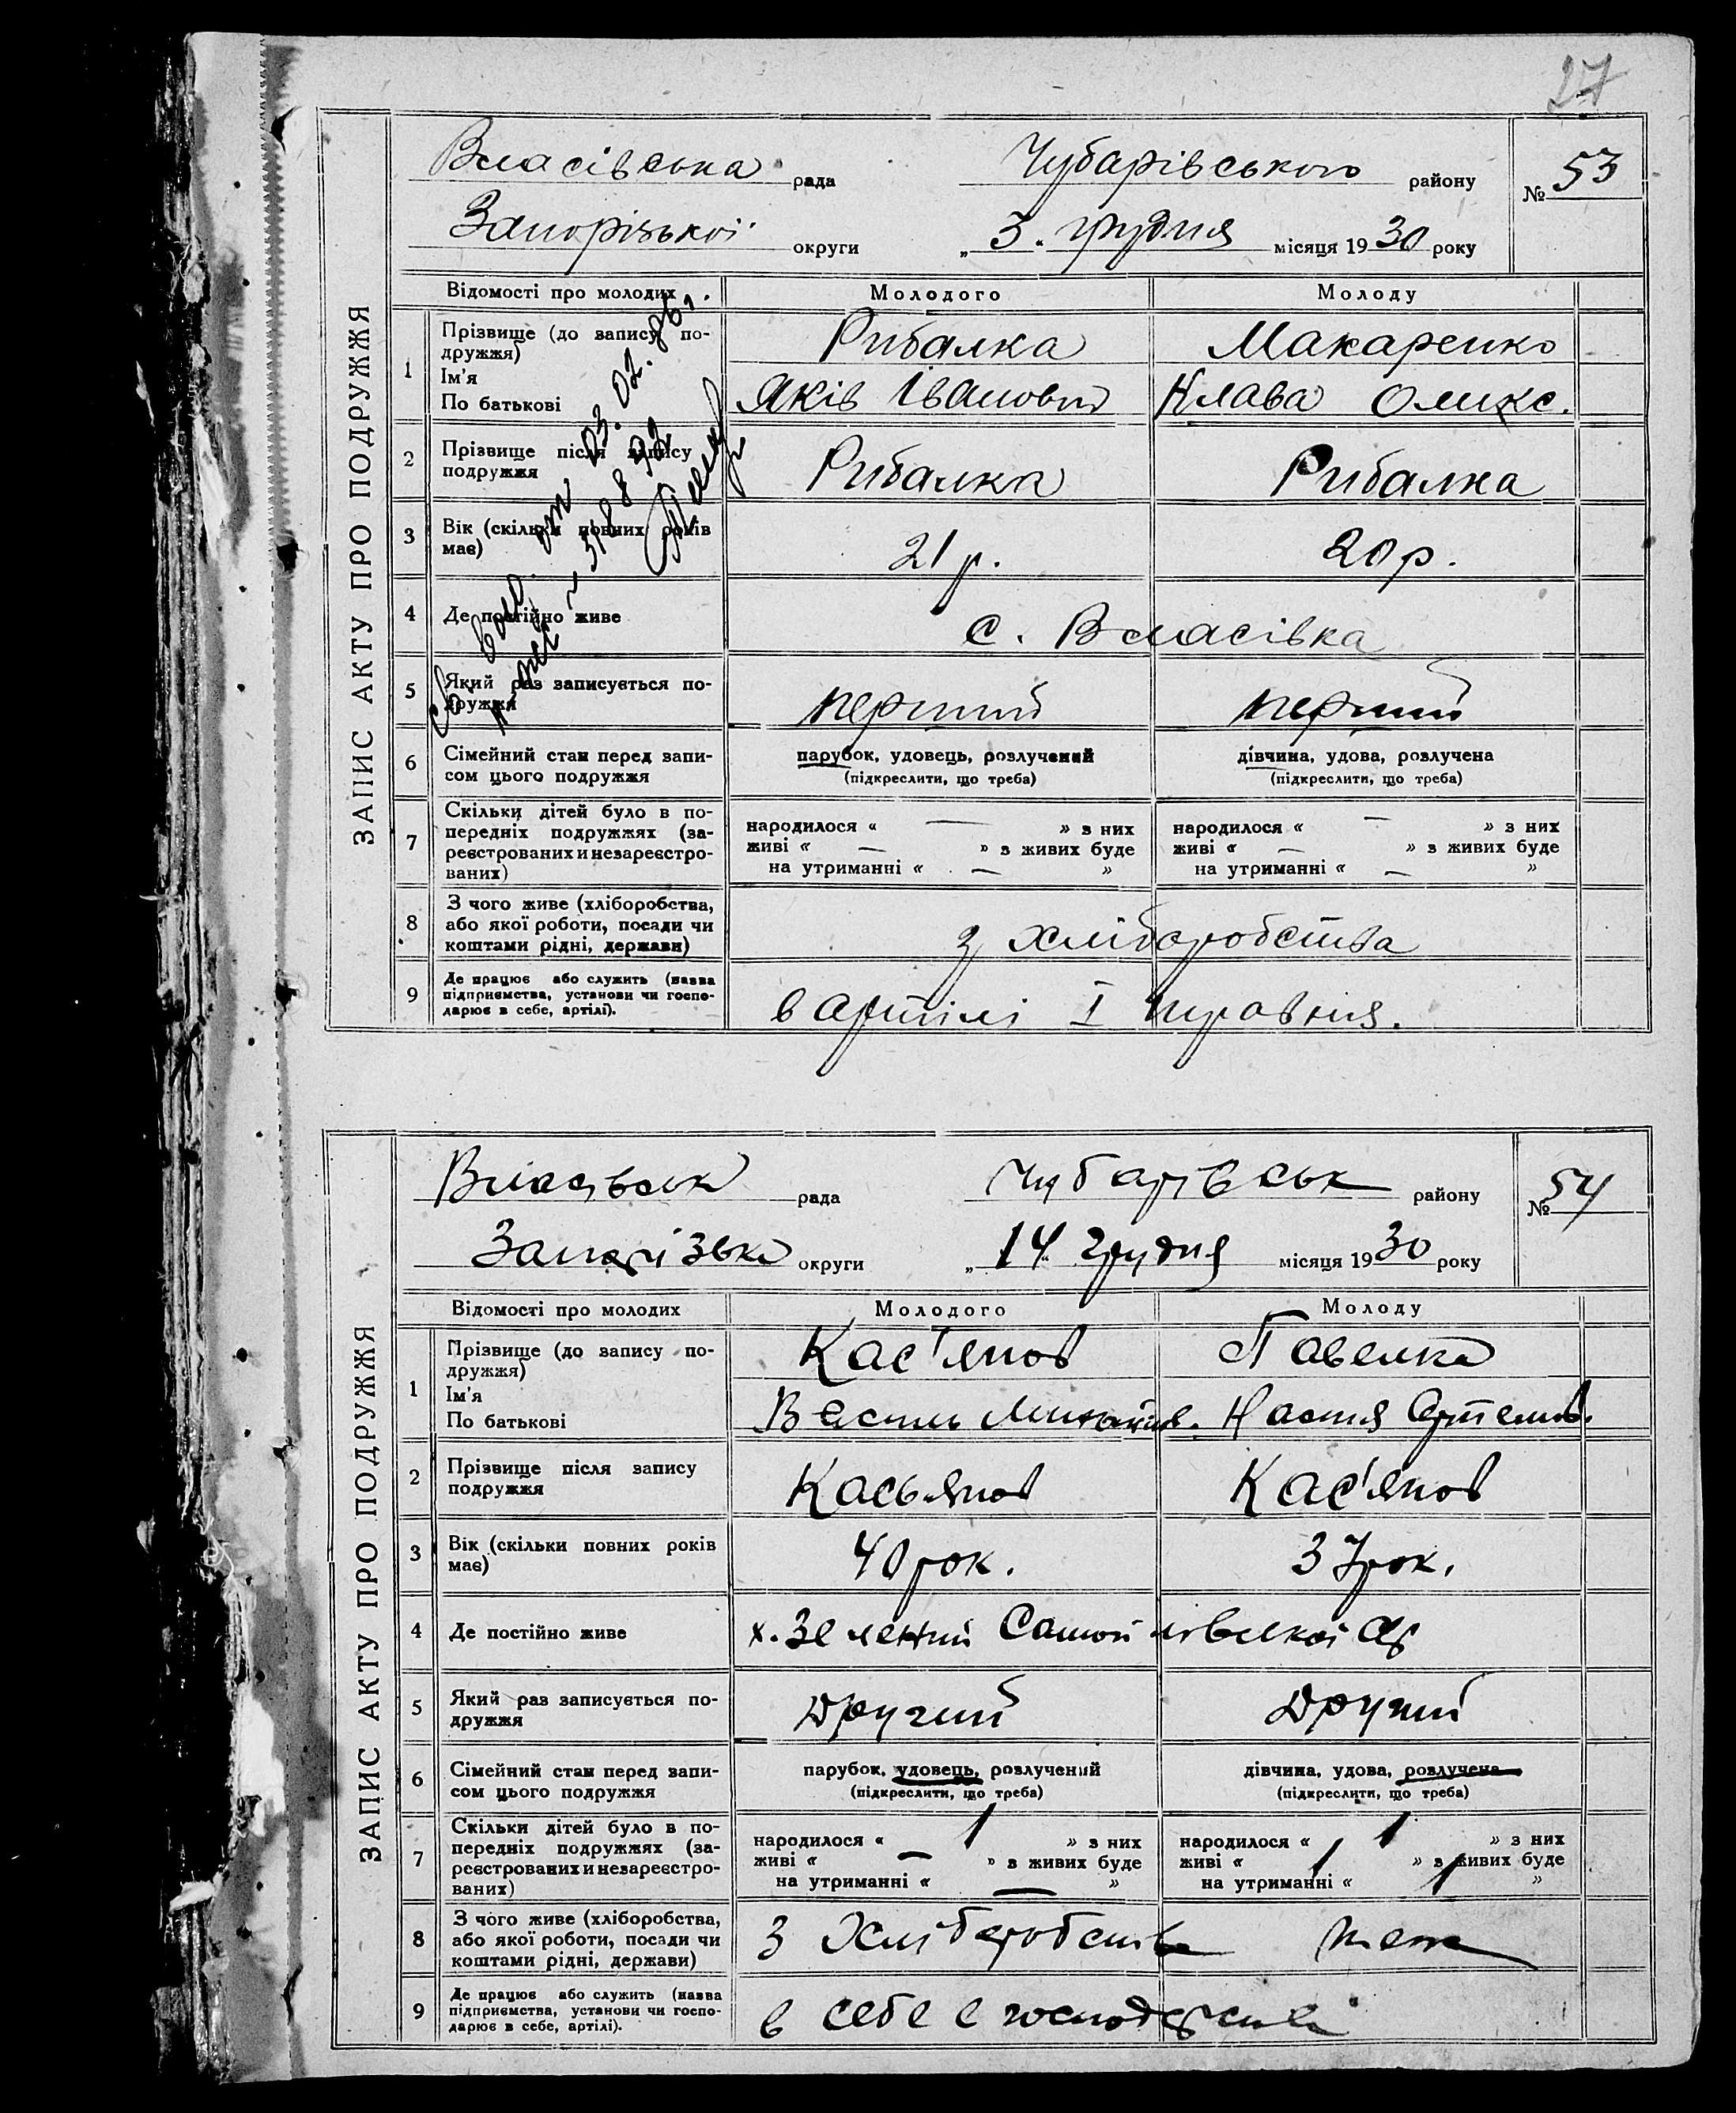 27
ЗАПИС АКТУ ПРО ПОДРУЖЖЯ
Власівська рада Чубарівського району № 53
Запорізької округи „ 3 " грудня місяця 1930 року
Відомості про молодих Молодого Молоду
1 Прізвище (до запису по-
дружжя) Рибалка Макаренко
Ім'я
По батькові Яків Іванович Клава Олекс.
2 Прізвище після запису
подружжя Рибалка Рибалка
3 Вік (скільки повних років
має) 21 р. 20 р.
4 Де постійно живе с. Власівка
5 Який раз записується по-
дружжя перший перший
6 Сімейний стан перед запи-
сом цього подружжя парубок, удовець, розлучений дівчина, удова, розлучена
(підкреслити, що треба) (підкреслити, що треба)
7 Скільки дітей було в по-
передніх подружжях (за-
реєстрованих и незареєстро-
ваних)
народилося « — » з них народилося « — » з них
живі « — » з живих буде живі « — » з живих буде
на утриманні « — » на утриманні « — »
8 З чого живе (хліборобства,
або якої роботи, посади чи
коштами рідні, держави) з хліборобства
9 Де працює або служить (назва
підприємства, установи чи госпо-
дарює в себе, артілі). в артілі І травня.
от 03.02.86.
ЗАПИС АКТУ ПРО ПОДРУЖЖЯ
Власівськ рада Чубарівськ району № 54
Запорізька округи „ 14 " грудня місяця 1930 року
Відомості про молодих Молодого Молоду
1 Прізвище (до запису по-
дружжя) Кас'янов Павелка
Ім'я
По батькові Василь Настя Артемів.
2 Прізвище після запису
подружжя Касьянов Кас'янов
3 Вік (скільки повних років
має) 40 рок. 37 рок.
4 Де постійно живе х. Зелений
5 Який раз записується по-
дружжя Другий Другий
6 Сімейний стан перед запи-
сом цього подружжя парубок, удовець, розлучений дівчина, удова, розлучена
(підкреслити, що треба) (підкреслити, що треба)
7 Скільки дітей було в по-
передніх подружжях (за-
реєстрованих и незареєстро-
ваних)
народилося « 1 » з них народилося « 1 » з них
живі « — » з живих буде живі « 1 » з живих буде
на утриманні « — » на утриманні « 1 »
8 З чого живе (хліборобства,
або якої роботи, посади чи
коштами рідні, держави) З Хліборобства теж
9 Де працює або служить (назва
підприємства, установи чи госпо-
дарює в себе, артілі). в себе в господарстві